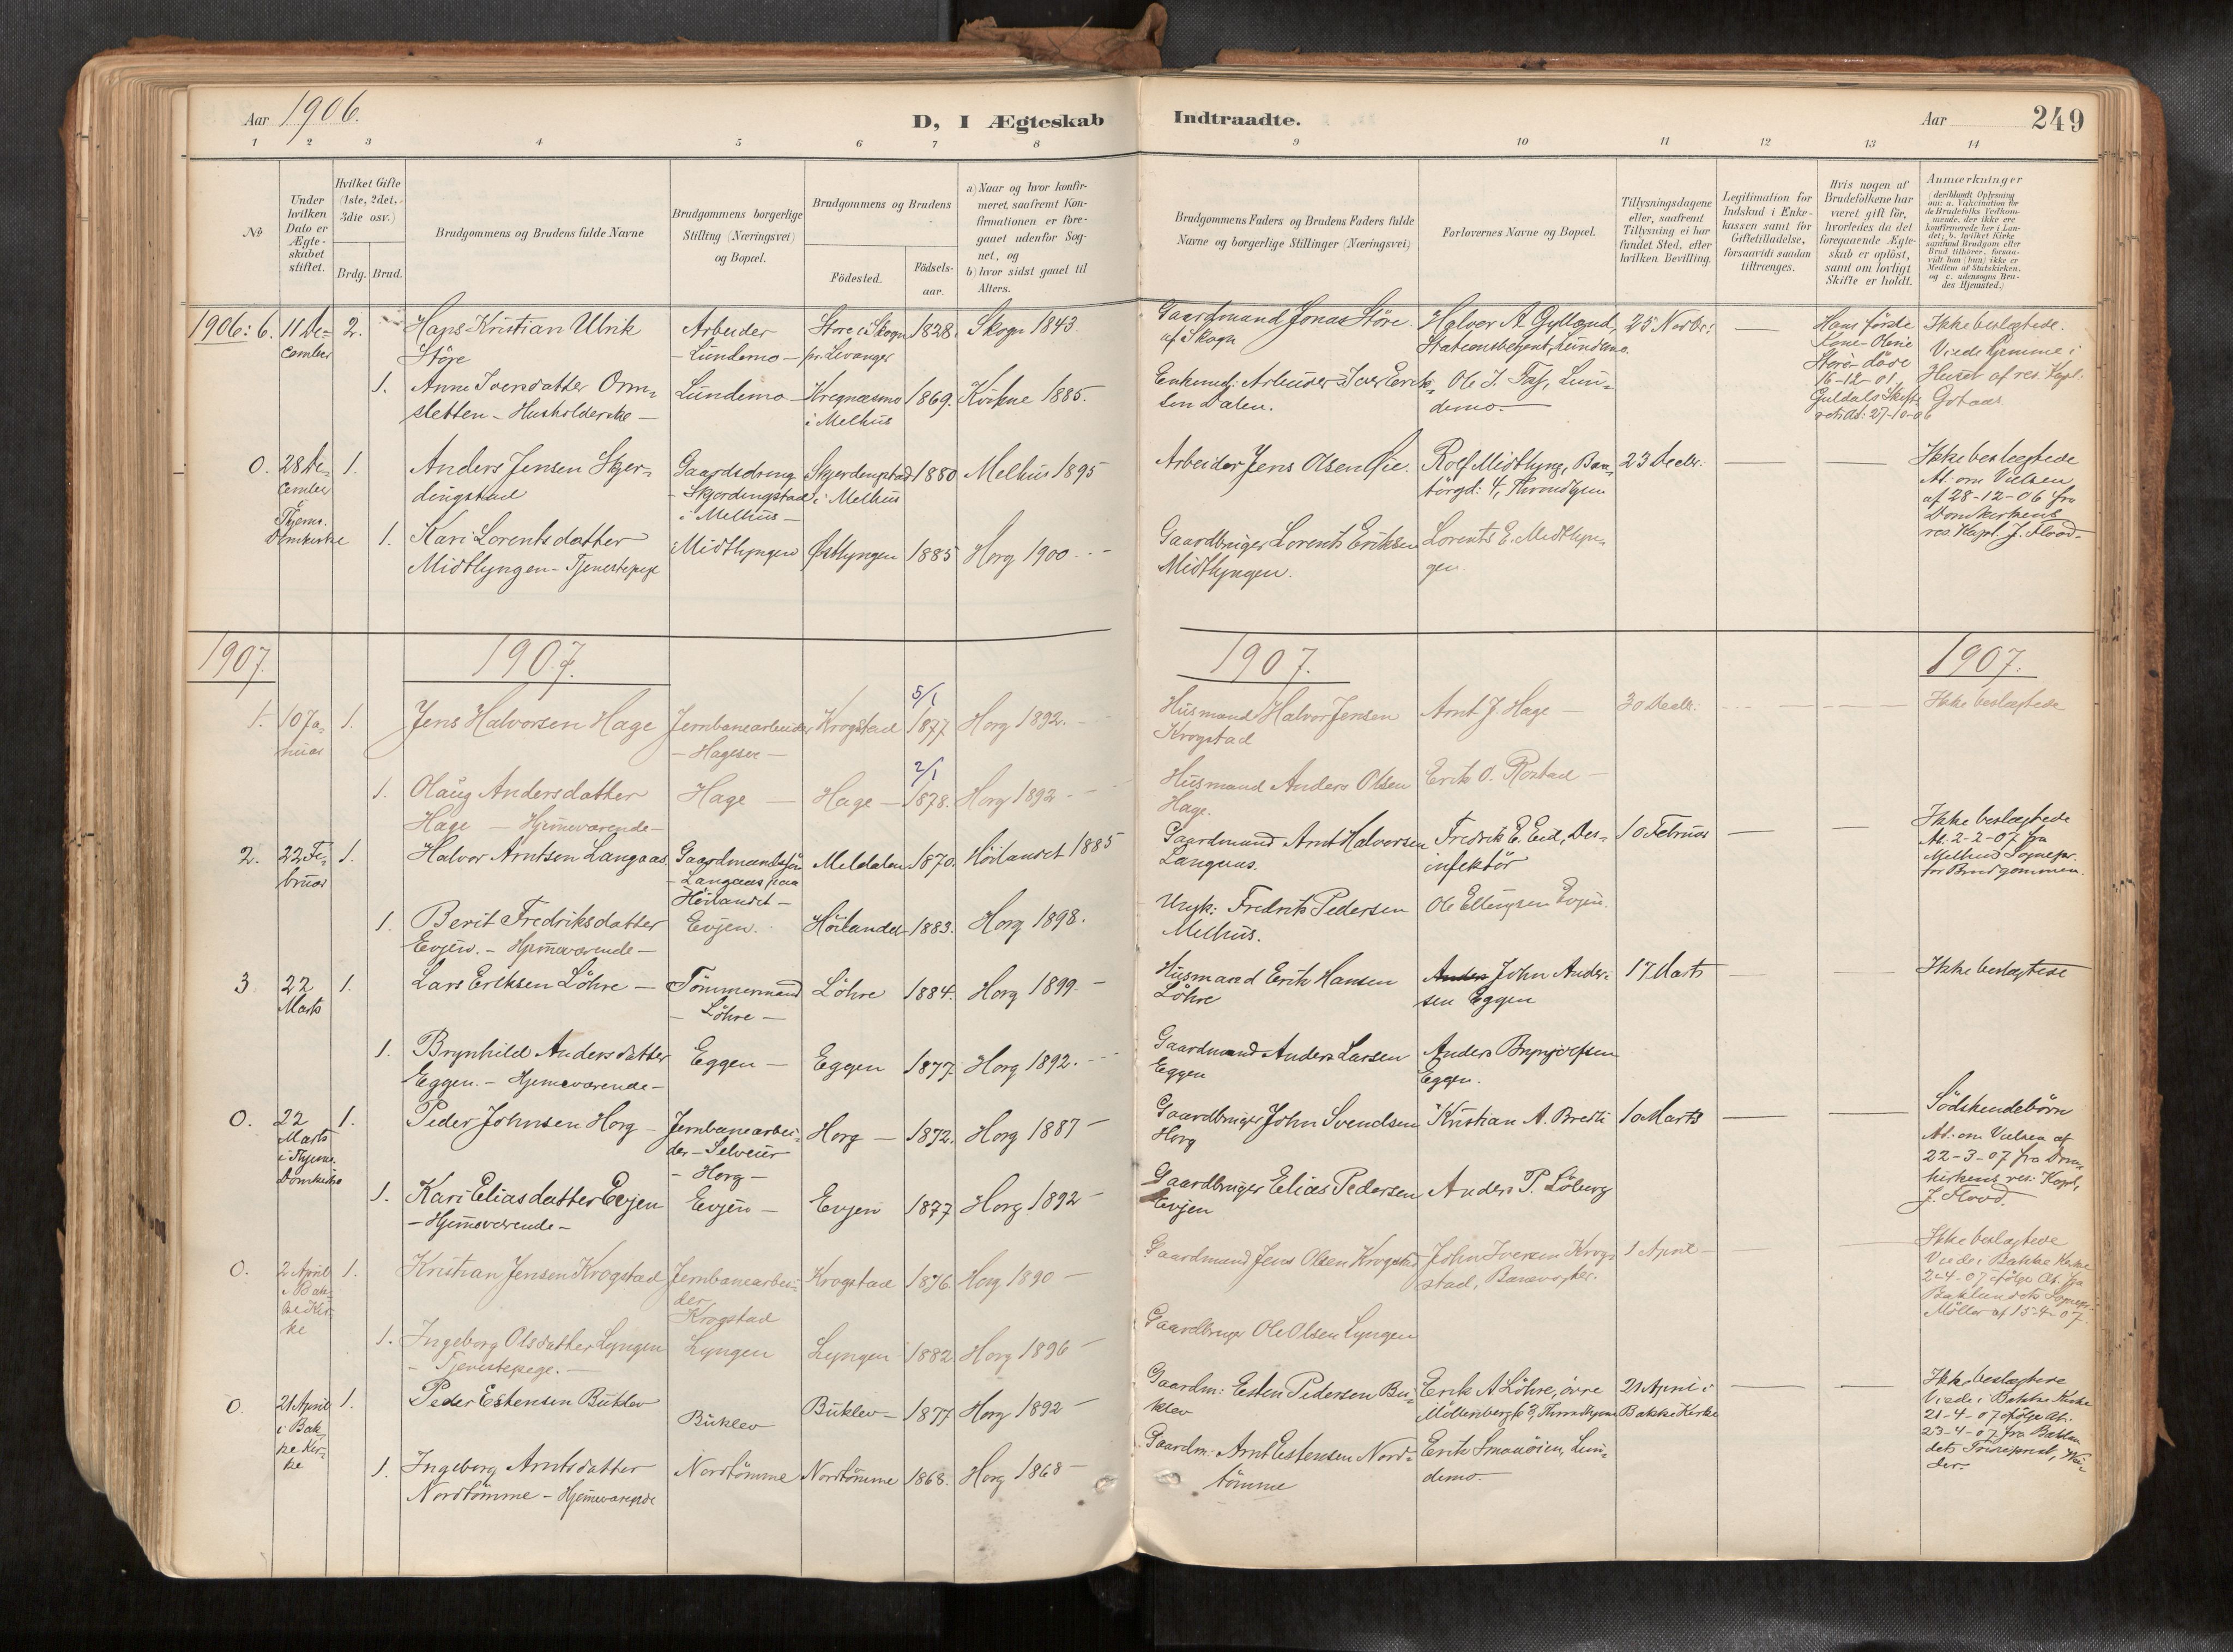 Aar 1906.
D, I Ægteskab
Indtraadte.
Aar
249
1 2 3 4 5 6 7 8 9 10 11 12 13 14
№
Under hvilken Dato er Ægte-skabet stiftet.
Hvilket Gifte (1ste, 2det, 3die osv.)
Brdg. Brud.
Brudgommens og Brudens fulde Navne
Brudgommens borgerlige Stilling (Næringsvei) og Bopæl.
Brudgommens og Brudens
Födested.
Födsels-aar.
a) Naar og hvor konfir-meret, saafremt Kon-firmationen er fore-gaaet udenfor Sog-net, og
b) hvor sidst gaaet til Alters.
Brudgommens Faders og Brudens Faders fulde Navne og borgerlige Stillinger (Næringsvei)
Forlovernes Navne og Bopæl.
Tillysningsdagene eller, saafremt Tillysning ei har fundet Sted, efter hvilken Bevilling.
Legitimation for Indskud i Enke-kassen samt for Giftetilladelse, forsaavidt saadan tiltrænges.
Hvis nogen af Brudefolkene har været gift för, hvorledes da det foregaaende Ægte-skab er oplöst, samt om lovligt Skifte er holdt.
Anmærkninger (deriblandt Oplysning om: a. Vakcination for de Brudefolks Vedkom-mende, der ikke ere konfirmerede her i Lan-det; b. hvilket Kirke-samfund Brudgom eller Brud tilhörer, forsaa-vidt han (hun) ikke er Medlem af Statskirken, og c. udensogns Bru-des Hjemsted.)
1906: 6. 11 De-cember 2. Hans Kristian Ulrik Störe
Arbeider - Lundemo -
Störe i Skogn pr. Levanger 1828. Skogn 1843
Gaardmand Jonas Störe af Skogn
Halvor A. Gylland, Stationsbetjent, Lundemo.
25 Novbr: —
Hans förste Kone - Oline Störe - döde 16-12-01
27-10-06
Ikke beslægtede. Viede hjemme i Huset af res. Kapl.
1. Anne Iversdatter Orm-sletten - Husholderske -
Lundemo - Kregnæsmo i Melhus 1869. Kvikne 1885.
Enkemd: Arbeider Iver Erik-sen Dalen.
Ole J. Lun-demo.
0. 28 De-cember i Thjems. Domkirke 1. Anders Jensen Skjer-dingstad
Gaardsdreng - Skjerdingstad i Melhus -
Skjerdingstad i Melhus 1880 Melhus 1895
Arbeider Jens Olsen Øie.
Rolf Midtlyng, 4, Throndhjem
23 Decbr. — —
Ikke beslægtede At. om Vielsen af 28-12-06 fra Domkirkens res. Kapl. J. Flood.
1. Kari Lorentsdatter Midtlyngen - Tjenestepige
Midtlyngen Østlyngen 1885 Horg 1900
Gaardbruger Lorents Eriksen Midtlyngen.
Lorents E. Midtlyn-gen
1907. 1907. 1907. 1907.
1. 10 Ja-nuar 1. Jens Halvorsen Hage
Jernbanearbeider - Hagesen -
Krogstad 5/1 1877 Horg 1892.
Husmand Halvor Jensen Krogstad
Arnt J. Hage - 30 Decbr. Ikke beslægtede
1. Olaug Andersdatter Hage - Hjemmeværende -
Hage - Hage - 2/1 1878. Horg 1892
Husmand Anders Olsen Hage.
Erik O. Rostad -
2. 22 Fe-bruar 1. Halvor Arntsen Langaas
Gaardmandssön - Langaas paa Höilandet -
Meldalen 1870. Höilandet 1885
Gaardmand Arnt Halvorsen Langaas.
Fredrik E. Eid, Des-infektör
10 Februar — —
Ikke beslægtede At. 2-2-07 fra Melhus Sognepr. for Brudgommen.
1. Berit Fredriksdatter Evjen. - Hjemmeværende -
Evjen. Höilandet 1883. Horg 1898.
Ungk: Fredrik Pedersen Melhus.
Ole Ellingsen Evjen.
3 22 Marts 1. Lars Eriksen Löhre -
Tömmermand - Löhre -
Löhre 1884. Horg 1899.
Husmand Erik Hansen Löhre
Anders John Ander-sen Eggen
17 Marts — — Ikke beslægtede
1. Brynhild Andersdatter Eggen. - Hjemmeværende -
Eggen - Eggen 1877. Horg 1892.
Gaardmand Anders Larsen Eggen
Anders Brynjolfsen Eggen.
0. 22 Marts i Thjems. Domkirke 1. Peder Johnsen Horg -
Jernbanearbei-der - Selveier - Horg -
Horg - 1872. Horg 1887 -
Gaardbruger John Svendsen Horg
Kristian A. Bredli 10 Marts — —
Södskendebörn At. om Vielsen af 22-3-07 fra Dom-kirkens res. Kapl. J. Flood.
1. Kari Eliasdatter Evjen - Hjemmeværende -
Evjen - Evjen 1877 Horg 1892 -
Gaardbruger Elias Pedersen Evjen
Anders P. Löberg
0. 2 April i Bak-ke Kir-ke 1. Kristian Jensen Krogstad
Jernbanearbei-der Krogstad
Krogstad 1876. Horg 1890 -
Gaardmand Jens Olsen Krogstad
John Iversen Krog-stad, Banevogter.
1 April -
Ikke beslægtede Viede i Bakke Kirke 2-4-07 ifölge At. fra Baklandets Sognepr. Möller af 15-4-07.
1. Ingeborg Olsdatter Lyngen - Tjenestepige. -
Lyngen Lyngen 1882 Horg 1896 -
Gaardbruger Ole Olsen Lyngen
0. 21 April i Bak-ke Kir-ke 1. Peder Estensen Buklev
Buklev Buklev - 1877 Horg 1892 -
Gaardm: Esten Pedersen Bu-klev
Erik A Löhre, övre Möllenberg 63, Throndhjem
21 April i Bakke Kirke — —
Ikke beslægtede Viede i Bakke Kirke 21-4-07 ifölge At. 23-4-07 fra Baklan-dets
1. Ingeborg Arntsdatter Nordtömme - Hjemmeværende
Nordtömme Nordtömme 1868. Horg 1868 -
Gaardm: Arnt Estensen Nord-tömme
Erik Smauöien, Lun-demo.